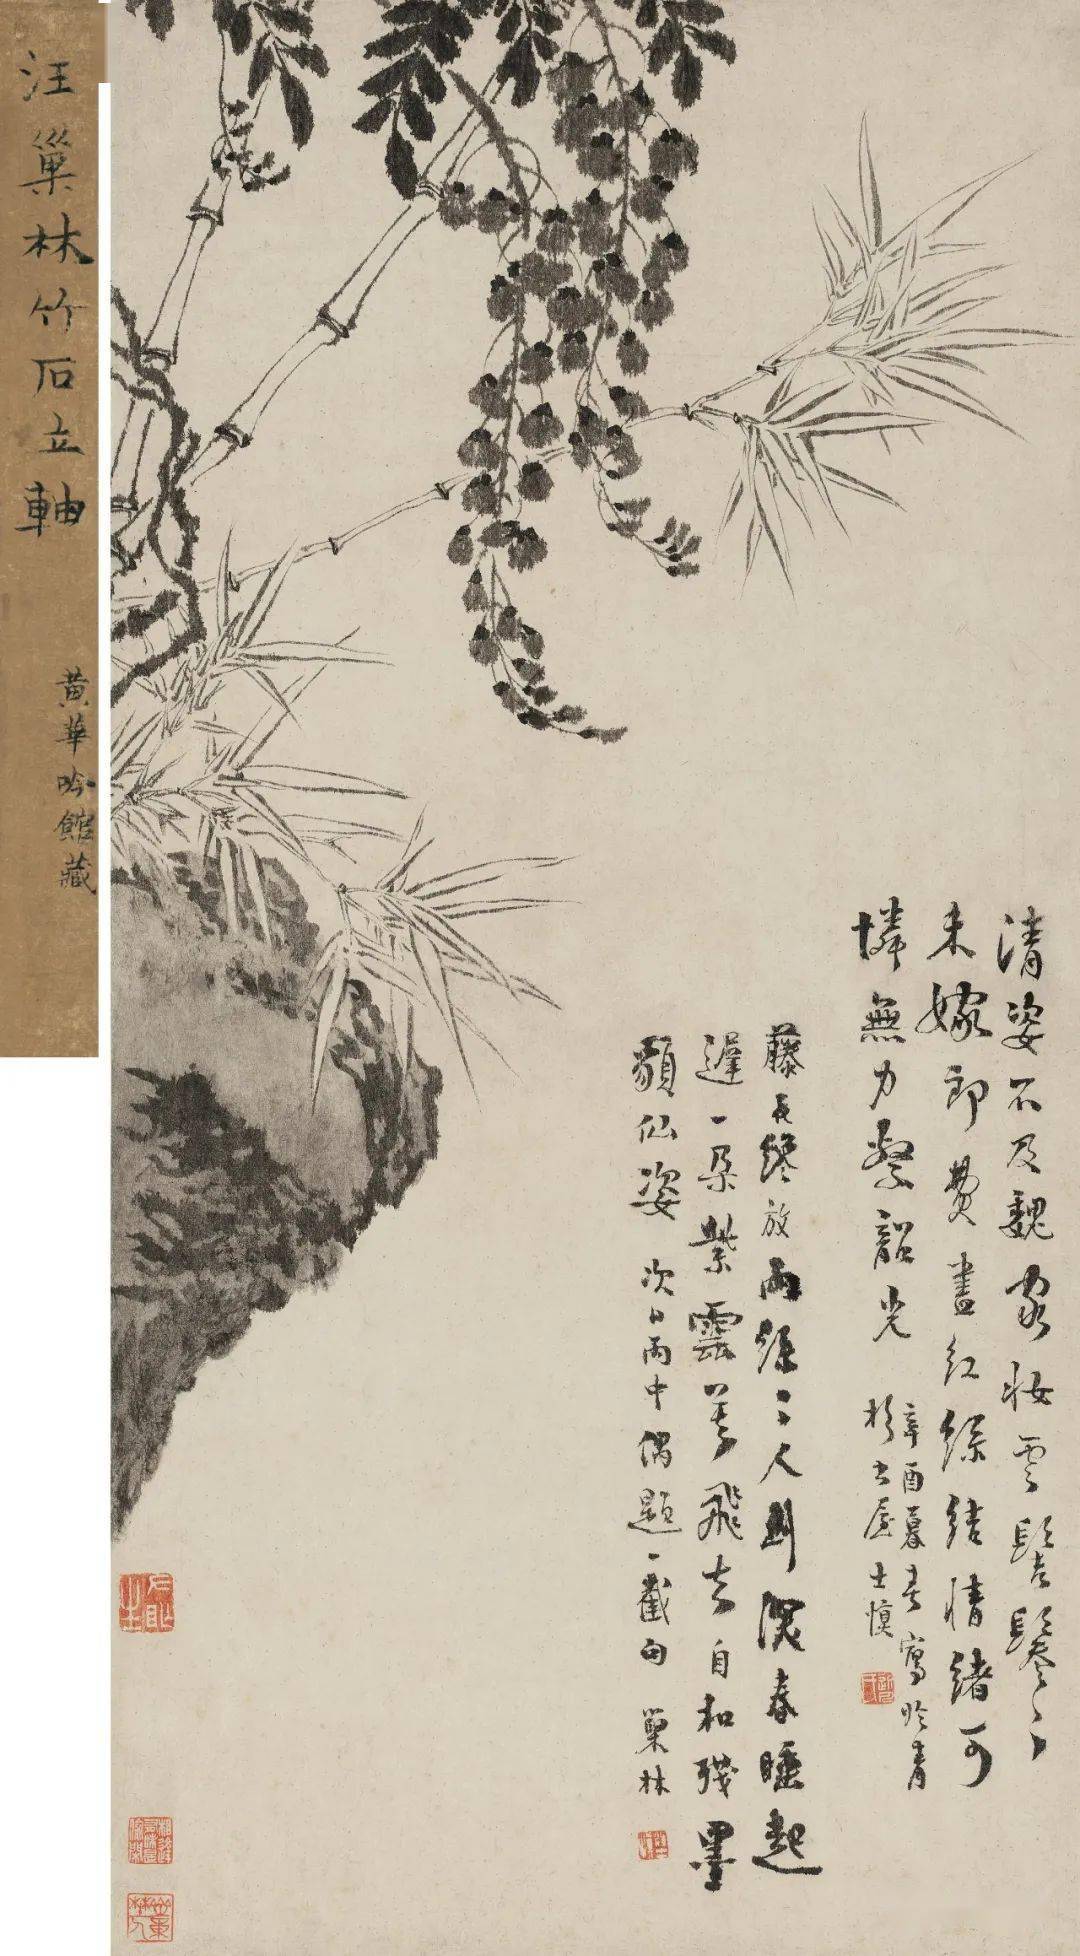 汪巢林竹石立軸
黄華吟館藏
清姿不及魏家妝雲髻鬖〻
未嫁郎費盡紅絲結情緒可
憐無力繫韶光
辛酉暮春寫於青
杉書屋士慎
藤花纔放雨絲〻人到深春睡起
遲一朵紫雲莫飛去自和殘墨
䫉仙姿 次日雨中偶題一截句 巢林